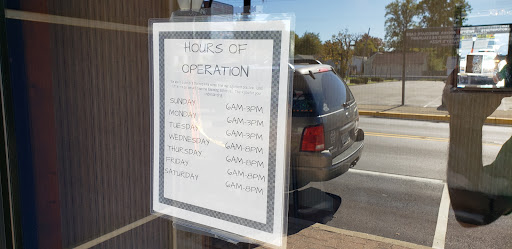 HOURS OF
OPERATION
SUNDAY 6AM-3PM
MONDAY 6AM-3PM
TUESDAY 6AM-3PM
WEDNESDAY 6AM-8PM
THURSDAY 6AM-8PM
FRIDAY 6AM-8PM
SATURDAY 6AM-8PM